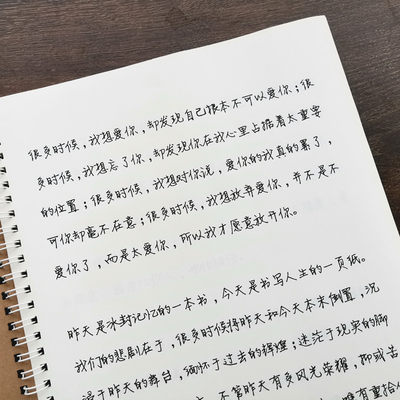 很多时候，我想爱你，却发现自己根本不可以爱你；很
多时候，我想忘了你，却发现你在我心里占据着太重要
的位置；很多时候，我想对你说，爱你的我真的累了，
可你却毫不在意；很多时候，我想放弃爱你，并不是不
爱你了，而是太爱你，所以我才愿意放开你。
昨天是尘封记忆的一本书，今天是书写人生的一页纸。
我们的悲剧在于，很多时候将昨天和今天本末倒置，沉
浸于昨天的舞台，缅怀于过去的辉煌；迷茫于现实的脚
不管昨天有多风光荣耀，抑或苦
有重拾